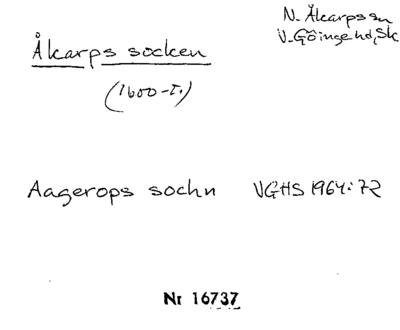 N. Åkarps sn
V. Göinge hd, Sk
Åkarps socken
(1600-t.)
Aagerops sochn VGHS 1964:72
Nr 16737